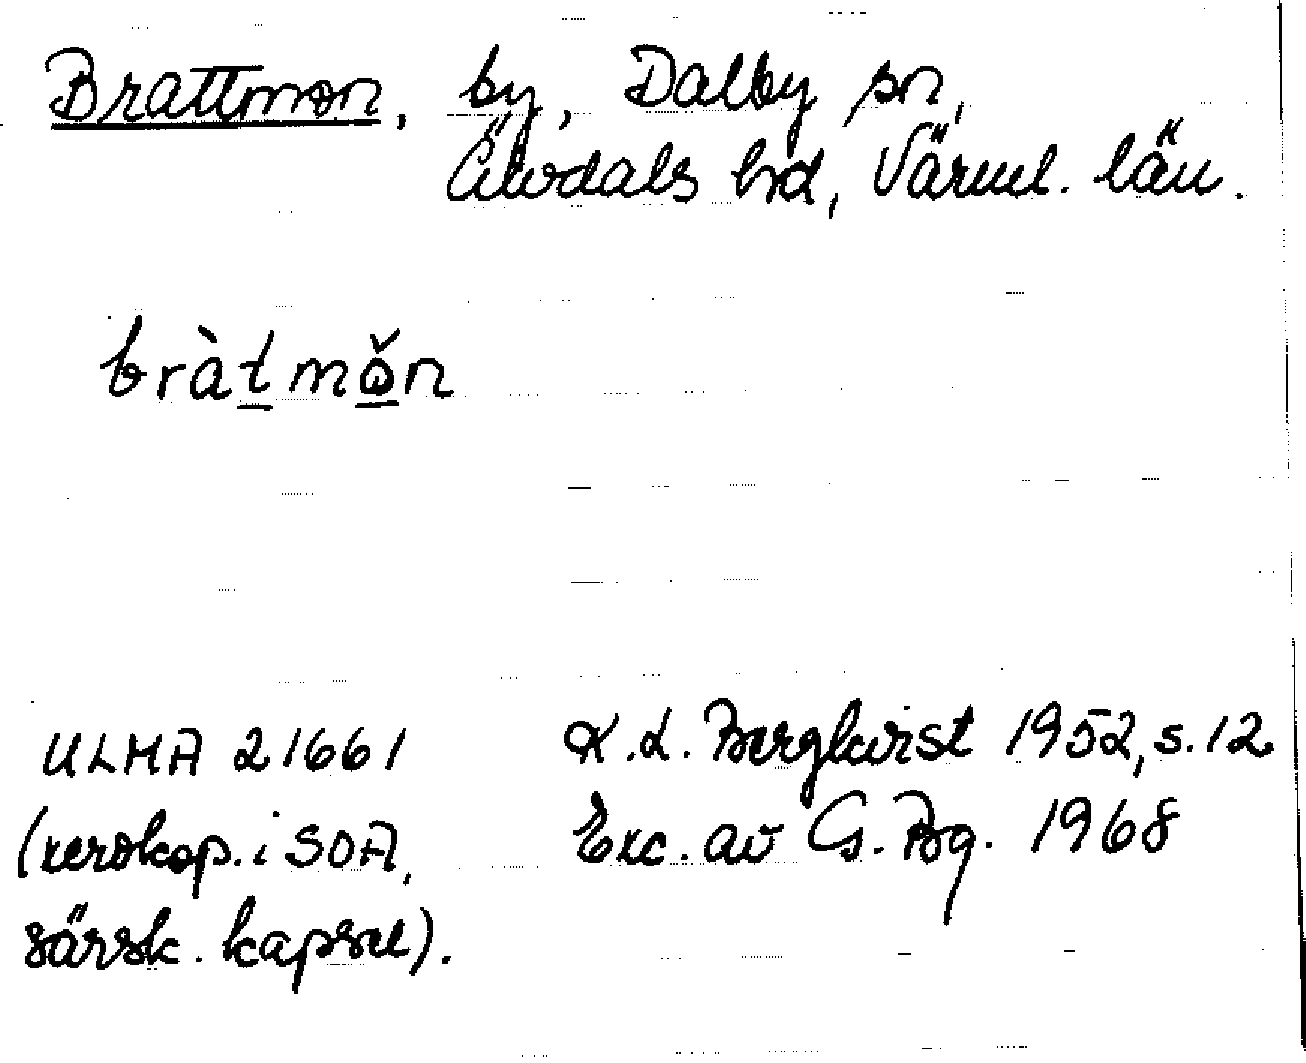 Brattmon, by, Dalby sn,
Älvdals hd, Värml. län.
bràt̲mò̲̌n
ULMA 21661 K.L. Bergkvist 1952, s. 12
(xerokop. i SOA, Exc. av G. Bg. 1968
särsk. kapsel).